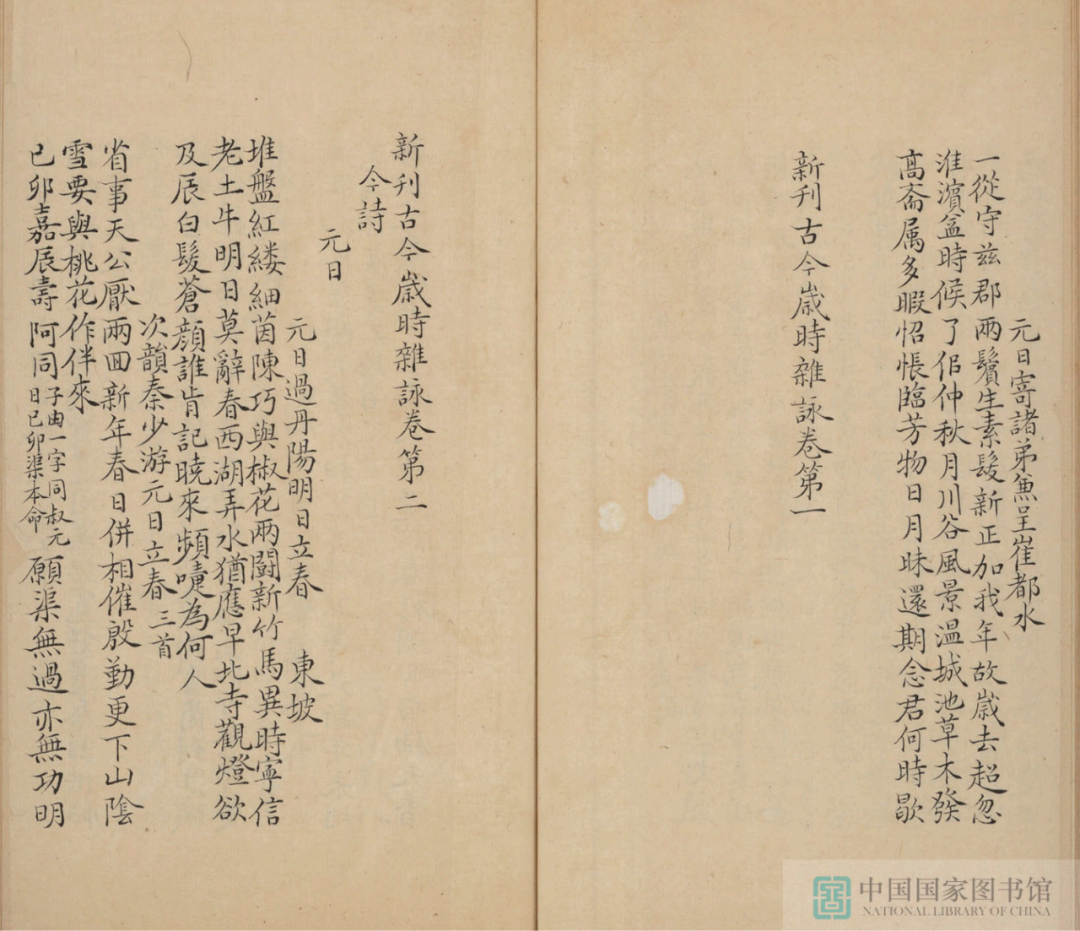 元日寄諸弟兼呈崔都水
一從守兹郡兩鬢生素髮新正加我年故歲去超忽
淮濵益時候了似仲秋月川谷風景温城池草木發
髙齋属多暇怊悵臨芳物日月昧還期念君何時歇
新刊古今歲時雜詠卷第一
新刊古今歲時雜詠卷第二
今詩
元日
元日過丹陽明日立春 東坡
堆盤紅縷細茵陳巧與椒花兩闘新竹馬異時寧信
老土牛明日莫辭春西湖弄水猶應早北寺觀燈欲
及辰白髮蒼顔誰肯記曉來頻嚏為何人
次韻秦少游元日立春三首
省事天公厭兩回新年春日併相催殷勤更下山隂
雪要與桃花作伴來
己卯嘉辰壽阿同子由一字同叔元日己卯渠本命願渠無過亦無功明
中国国家图书馆
NATIONAL LIBRARY OF CHINA